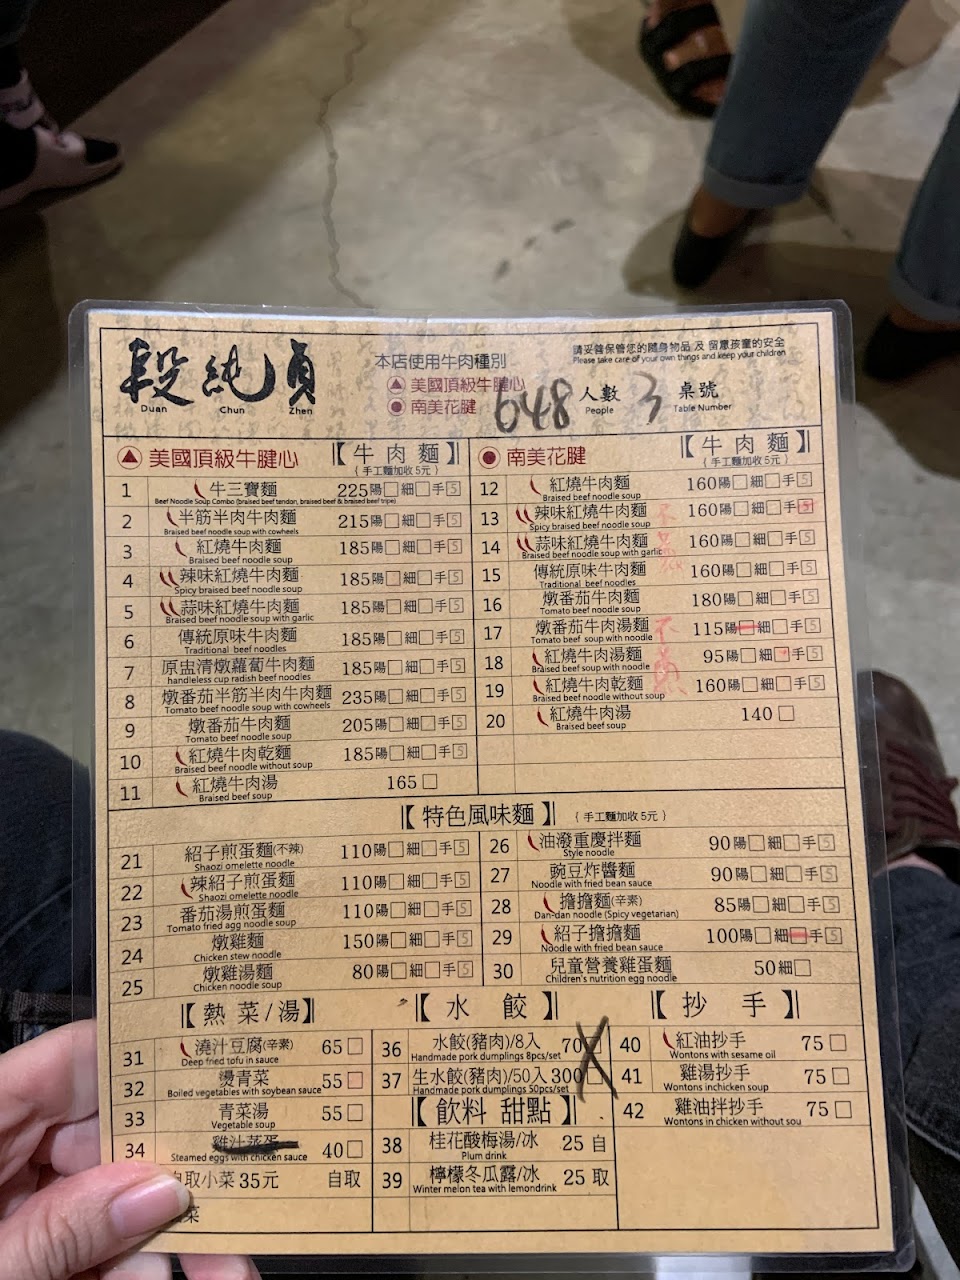 段純貞
Duan Chun Zhen
本店使用牛肉種別
▲美國頂級牛腱心
●南美花腱
請妥善保管您的隨身物品 及 留意孩童的安全
Please take care of your own things and keep your children
648 人數 3 桌號
People Table Number
▲美國頂級牛腱心 【牛肉麵】
(手工麵加收5元)
1 牛三寶麵 225陽□細□手5
Beef Noodle Soup Combo (braised beef tendon, braised beef & braised beef tripe)
2 半筋半肉牛肉麵 215陽□細□手5
Braised beef noodle soup with cowheels
3 紅燒牛肉麵 185陽□細□手5
Braised beef noodle soup
4 辣味紅燒牛肉麵 185陽□細□手5
Spicy braised beef noodle soup
5 蒜味紅燒牛肉麵 185陽□細□手5
Braised beef noodle soup with garlic
6 傳統原味牛肉麵 185陽□細□手5
Traditional beef noodles
7 原盅清燉蘿蔔牛肉麵 185陽□細□手5
handleless cup radish beef noodles
8 燉番茄半筋半肉牛肉麵 235陽□細□手5
Tomato beef noodle soup with cowheels
9 燉番茄牛肉麵 205陽□細□手5
Tomato beef noodle soup
10 紅燒牛肉乾麵 185陽□細□手5
Braised beef noodle without soup
11 紅燒牛肉湯 165□
Braised beef soup
●南美花腱 【牛肉麵】
(手工麵加收5元)
12 紅燒牛肉麵 160陽□細□手5
Braised beef noodle soup
13 辣味紅燒牛肉麵 160陽□細□手5
Spicy braised beef noodle soup
14 蒜味紅燒牛肉麵 160陽□細□手5
Braised beef noodle soup with garlic
15 傳統原味牛肉麵 160陽□細□手5
Traditional beef noodles
16 燉番茄牛肉麵 180陽□細□手5
Tomato beef noodle soup
17 燉番茄牛肉湯麵 115陽□細□手5
Tomato beef soup with noodle
18 紅燒牛肉湯麵 95陽□細□手5
Braised beef soup with noodle
19 紅燒牛肉乾麵 160陽□細□手5
Braised beef noodle without soup
20 紅燒牛肉湯 140□
Braised beef noodle soup
【特色風味麵】 (手工麵加收5元)
21 紹子煎蛋麵(不辣) 110陽□細□手5
Shaozi omelette noodle
22 辣紹子煎蛋麵 110陽□細□手5
Shaozi omelette noodle
23 番茄湯煎蛋麵 110陽□細□手5
Tomato fried egg noodle soup
24 燉雞麵 150陽□細□手5
Chicken stew noodle
25 燉雞湯麵 80陽□細□手5
Chicken noodle soup
26 油潑重慶拌麵 90陽□細□手5
Style noodle
27 豌豆炸醬麵 90陽□細□手5
Noodle with fried bean sauce
28 擔擔麵(辛素) 85陽□細□手5
Dan-dan noodle (Spicy vegetarian)
29 紹子擔擔麵 100陽□細□手5
Noodle with fried bean sauce
30 兒童營養雞蛋麵 50細□
Children's nutrition egg noodle
【熱菜/湯】
31 澆汁豆腐(辛素) 65□
Deep fried tofu in sauce
32 燙青菜 55□
Boiled vegetables with soybean sauce
33 青菜湯 55□
Vegetable soup
34 雞汁蒸蛋 40□
Steamed eggs with chicken sauce
自取小菜35元 自取
菜
【水餃】
36 水餃(豬肉)/8入 70□
Handmade pork dumplings 8pcs/set
37 生水餃(豬肉)/50入 300□
Handmade pork dumplings 50pcs/set
【飲料 甜點】
38 桂花酸梅湯/冰 25 自
Plum drink
39 檸檬冬瓜露/冰 25 取
Winter melon tea with lemondrink
【抄手】
40 紅油抄手 75□
Wontons with sesame oil
41 雞湯抄手 75□
Wontons inchicken soup
42 雞油拌抄手 75□
Wontons in chicken without sou